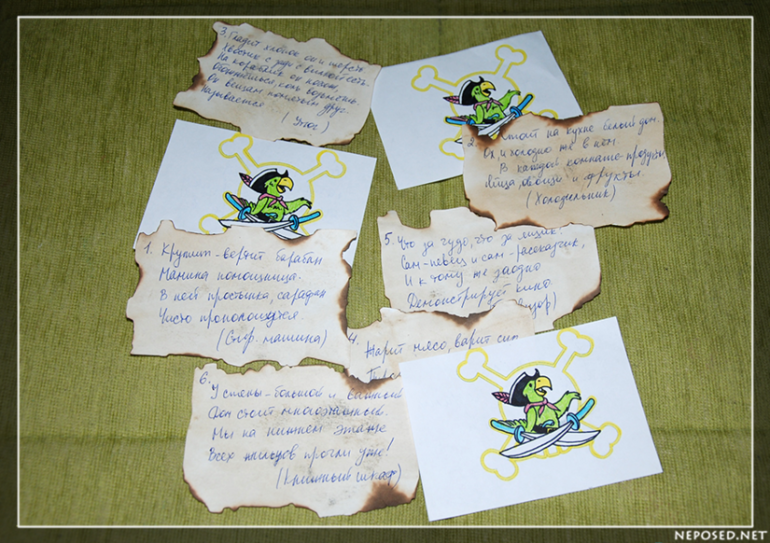 3. Гладит
Хвостик с
На
Он вещам
называется
(Утюг)
2. стоит на кухне белый дом.
Ох, и холодно же в нём
В каждой комнате продукты
Яйца, овощи и фрукты
(Холодильник)
1. Крутит-вертит барабан
Мамина помощница.
В ней простынка, сарафан
Чисто прополощутся.
(Стир. машина)
5. Что за чудо, что за ящик?
Сам-певец и сам-рассказчик,
И к тому же заодно
Демонстрирует кино
4. Жарит мясо, варит суп
6. У стены-большой и
Дом стоит многоэтажный.
Мы на нижнем этаже
Всех жильцов прочли уже!
(Книжный шкаф)
NEPOSED.NET